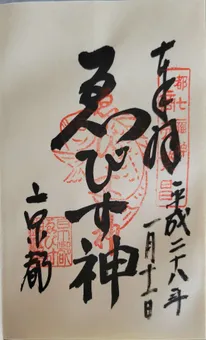 奉拝
都七福神
平成二十八年
一月十一日
ゑびす神
京都